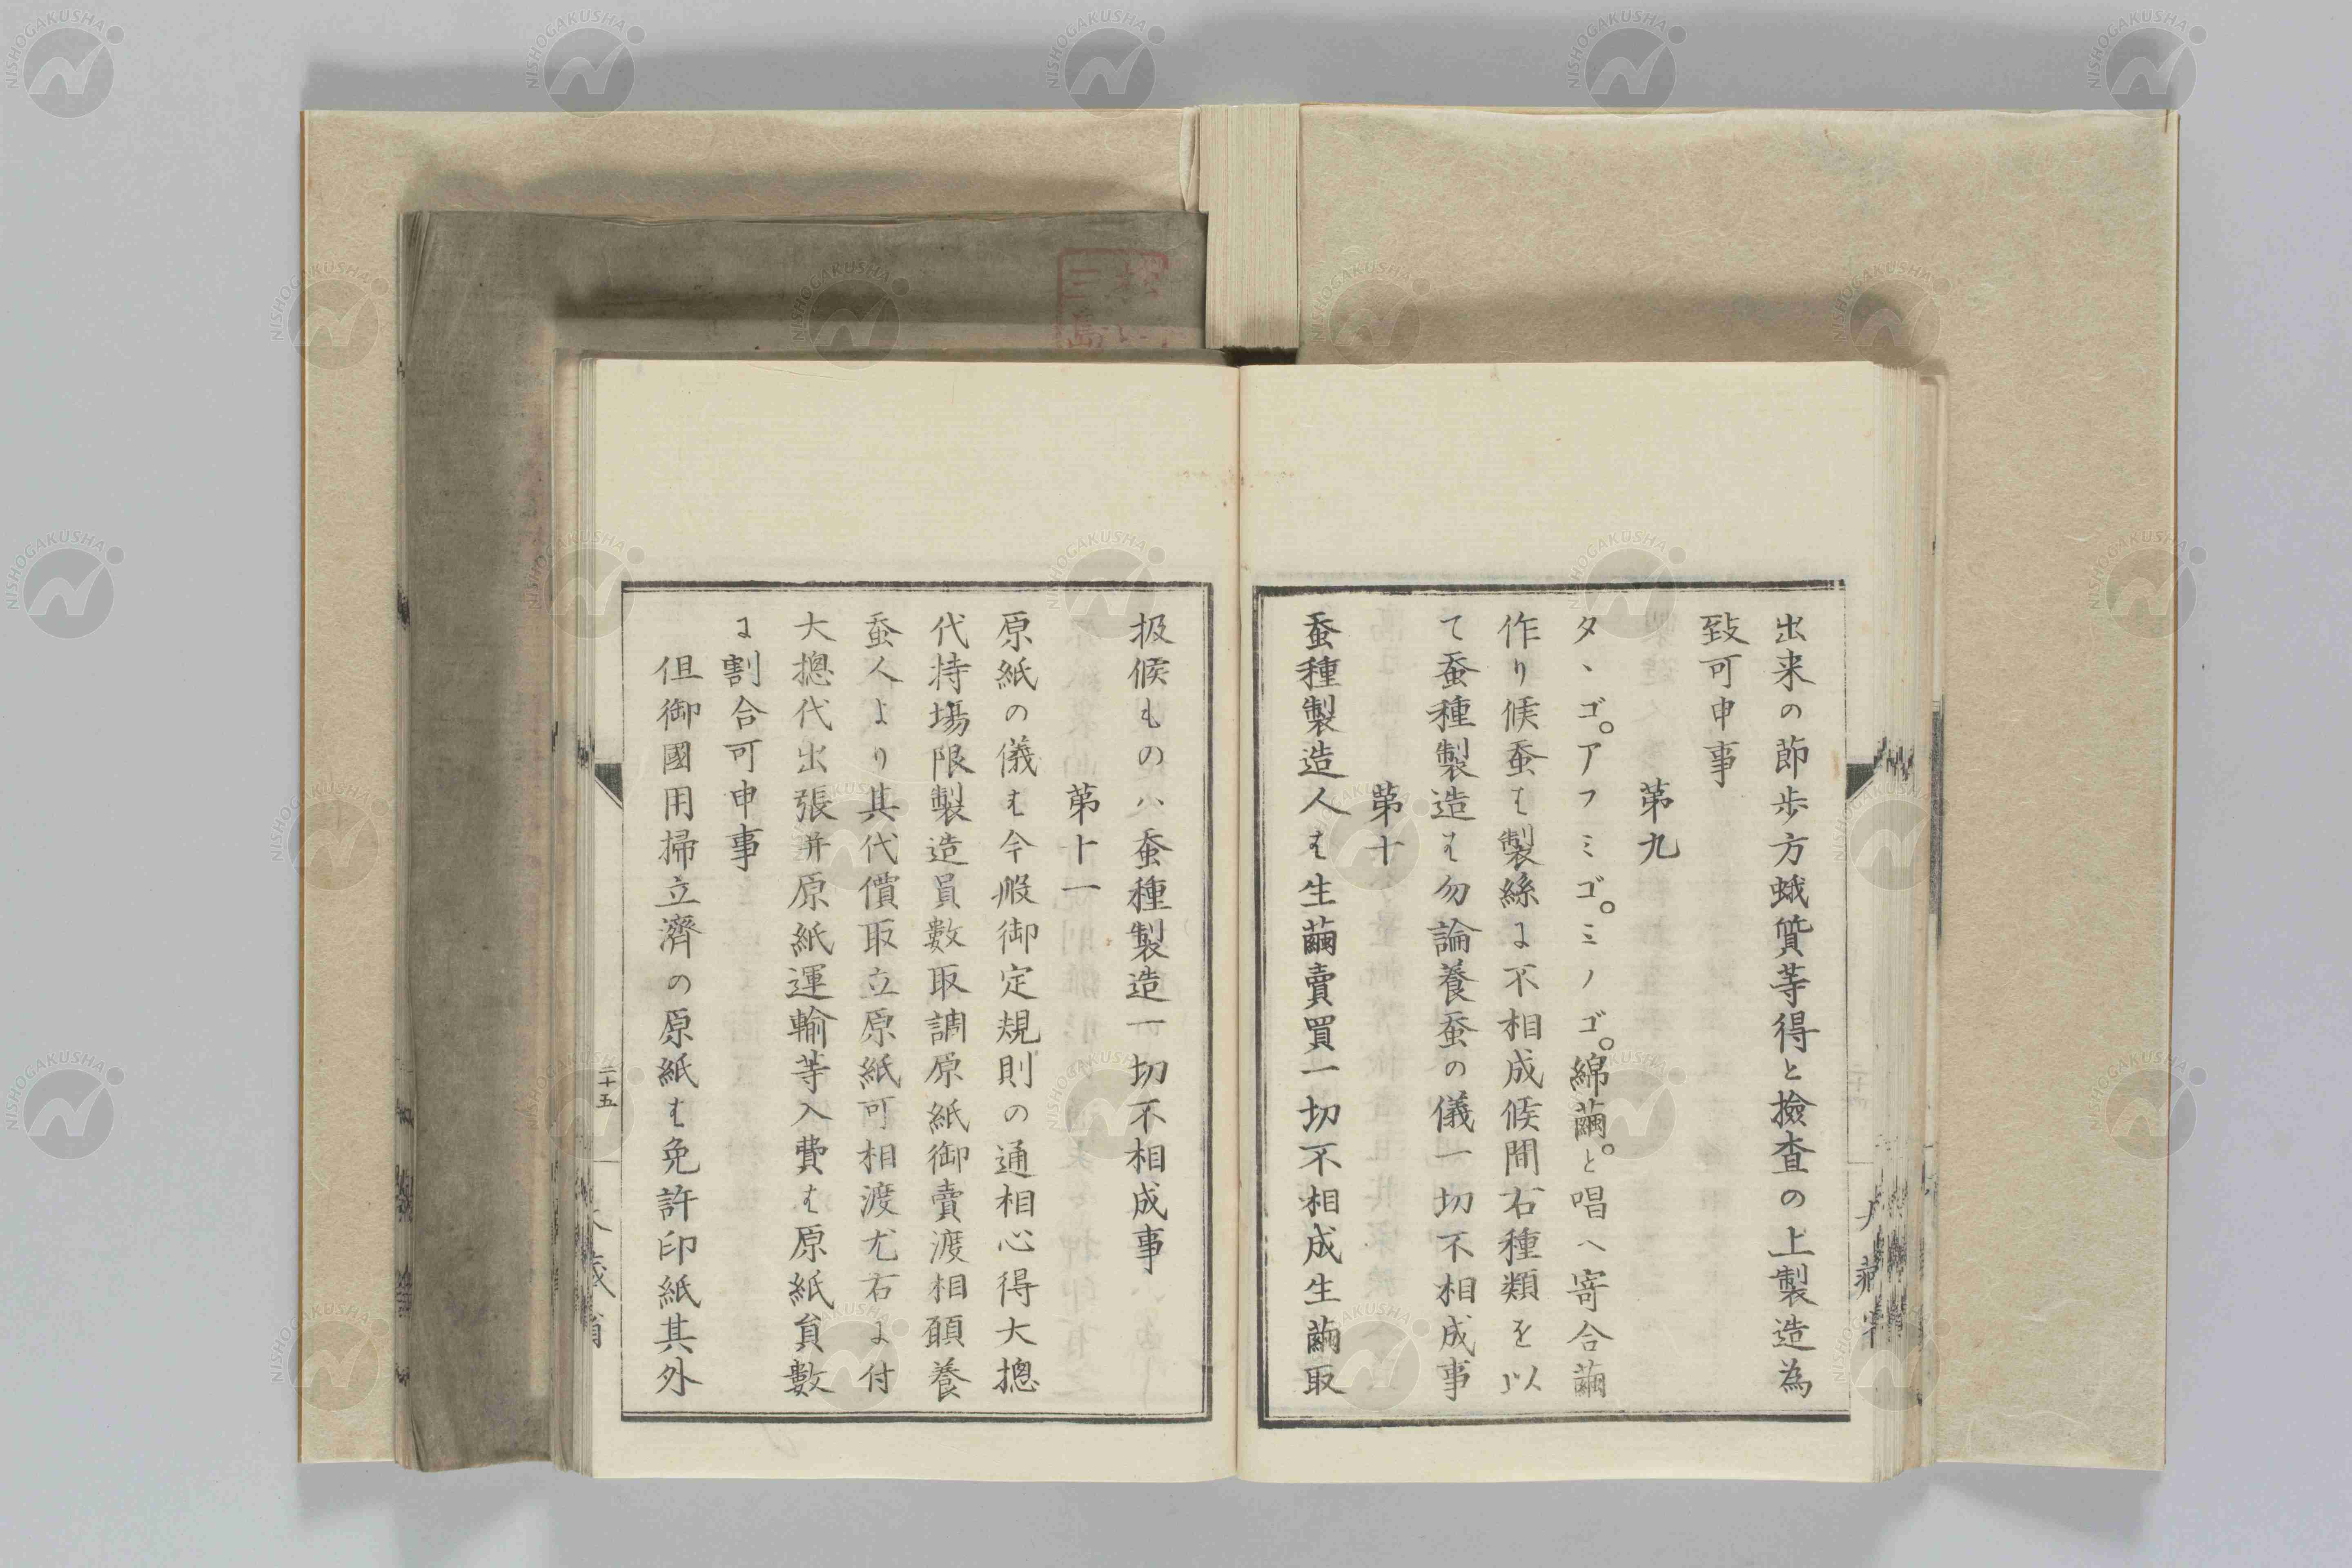 出来の節歩方蛾質等得と撿査の上製造為
致可申事
第九
タヽゴ。アフミゴ。ミノゴ。綿繭。と唱へ寄合繭
作り候蚕は製絲に不相成候間右種類を以
て蚕種製造は勿論養蚕の儀一切不相成事
第十
蚕種製造人は生繭賣買一切不相成生繭取
扱候ものハ蚕種製造一切不相成事
第十一
原紙の儀は今般御定規則の通相心得大摠
代持場限製造員數取調原紙御賣渡相願養
蚕人より其代價取立原紙可相渡尤右に付
大摠代出張并原紙運輸等入費は原紙員數
に割合可申事
但御國用掃立濟の原紙は免許印紙其外
二十五